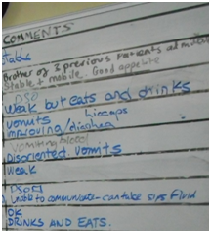 COMMENTS
Stable
Brother of 3 previous patients
Stable + mobile. Good appetite
Weak but eats and drinks
vomits
improving/diarrhea
Vomiting blood
Disoriented vomits
weak
Unable to communicate - can take sips fluid
OK
DRINKS AND EATS.